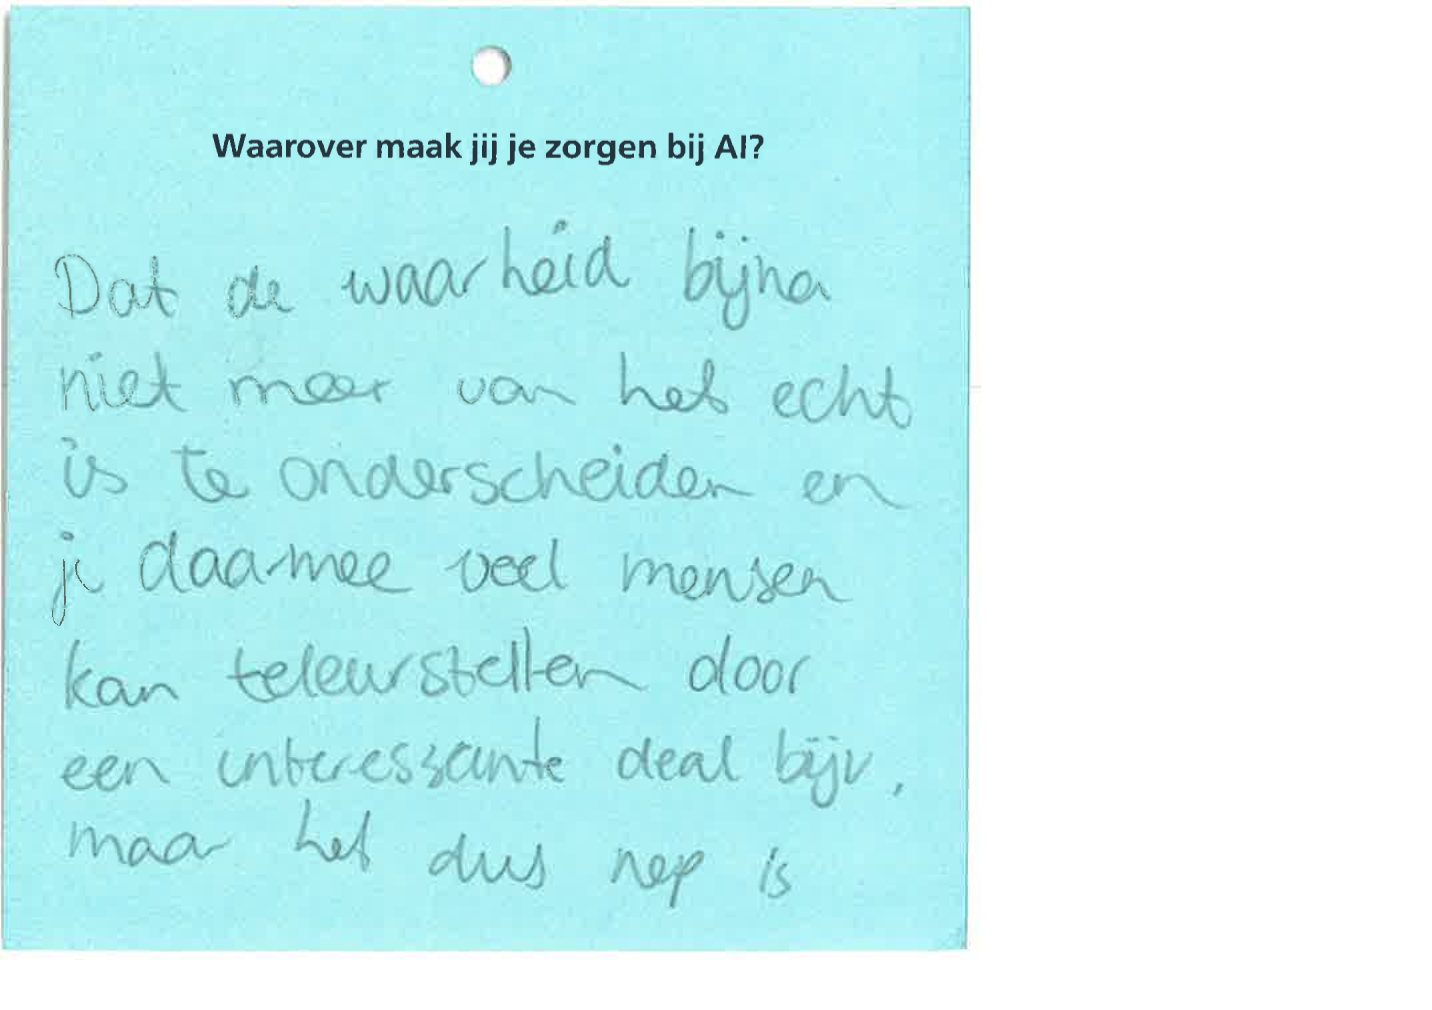 Waarover maak jij je zorgen bij AI?
Dat de waarheid bijna
niet meer van het echt
is te onderscheiden en
je daarmee veel mensen
kan teleurstellen door
een interessante deal bijv,
maar het dus nep is